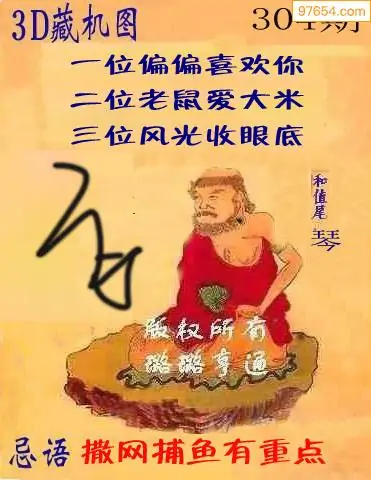 97654.com
3D藏机图
304期
一位偏偏喜欢你
二位老鼠爱大米
三位风光收眼底
和值尾
琴
版权所有
璐璐亨通
忌语 撒网捕鱼有重点